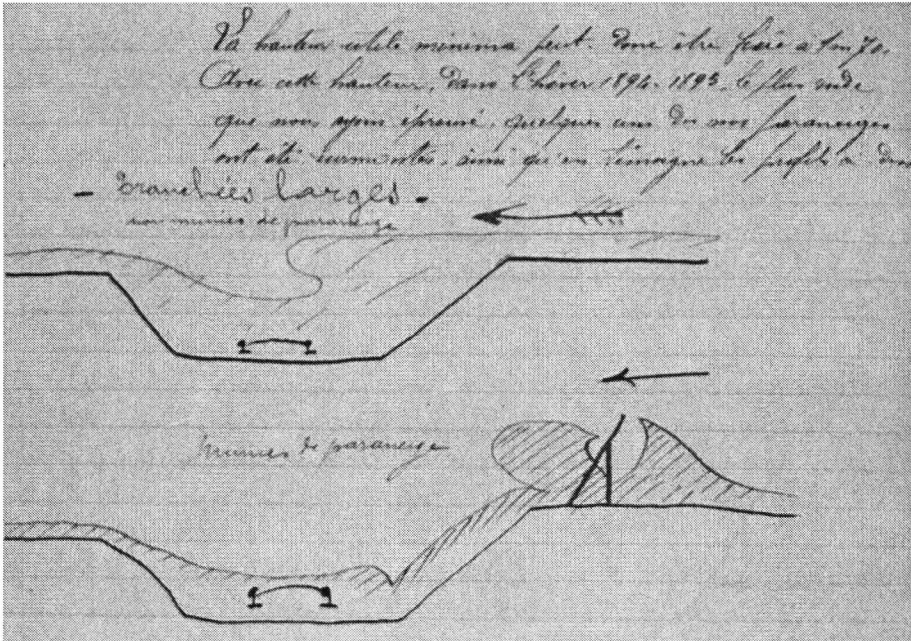 La hauteur utile minima peut donc être fixée à 1m70.
Avec cette hauteur, dans l'hiver 1894-1895, le plus rude
que nous ayons éprouvé, quelques uns de nos paraneiges
ont été surmontés, ainsi qu'en témoigne les profils
- Tranchées larges -
non munies de paraneige
munies de paraneige